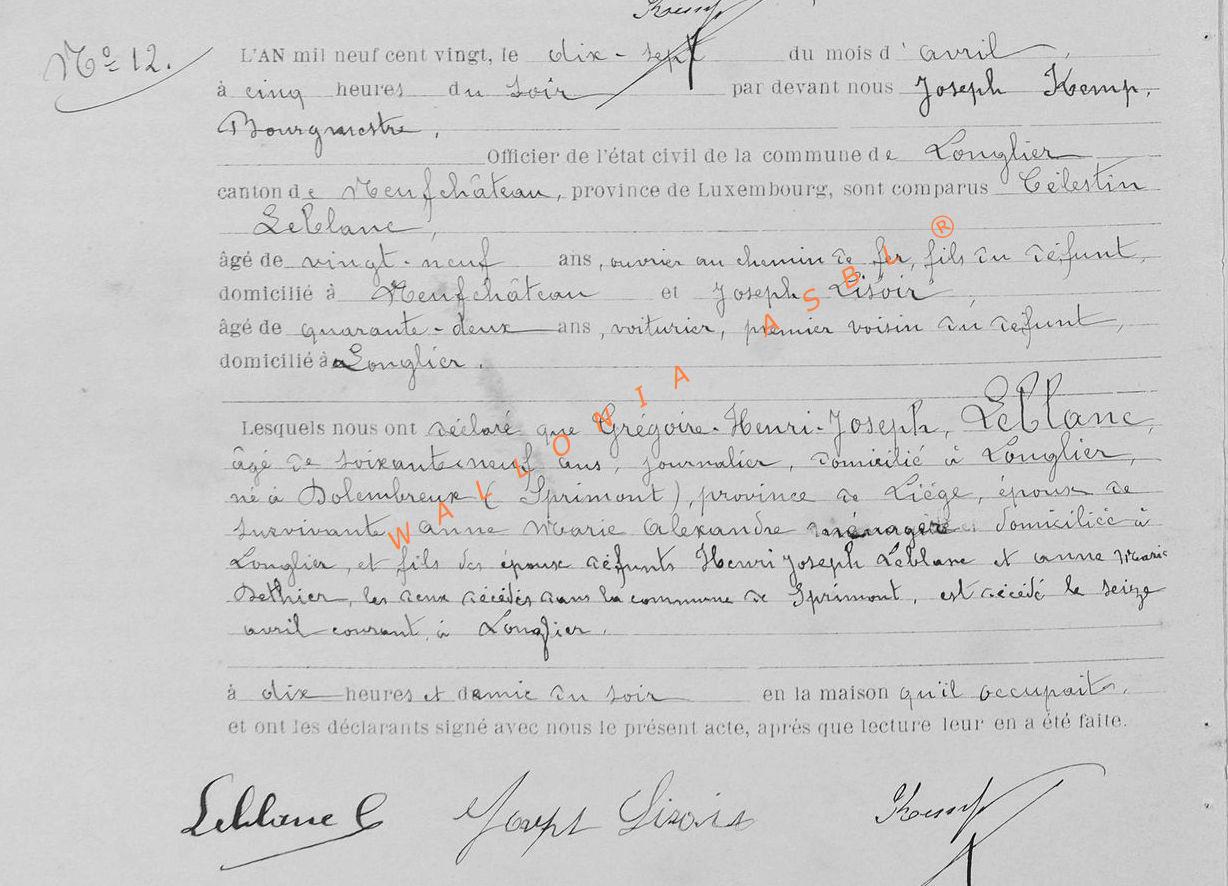 Kemp
Nº 12.
L'AN mil neuf cent vingt, le dix-sept du mois d'avril,
à cinq heures du soir par devant nous Joseph Kemp,
Bourgmestre,
Officier de l'état civil de la commune de Longlier
canton de Neufchâteau, province de Luxembourg, sont comparus Célestin
Leblanc,
âgé de vingt-neuf ans, ouvrier au chemin de fer, fils du défunt,
domicilié à Neufchâteau et Joseph Lisoir,
âgé de quarante-deux ans, voiturier, premier voisin du défunt,
domicilié à Longlier.
Lesquels nous ont déclaré que Grégoire-Henri-Joseph, Leblanc,
âgé de soixante neuf ans, journalier, domicilié à Longlier,
né à Dolembreux (Sprimont), province de Liége, époux de
survivante anne Marie Alexandre ménagère domiciliée à
Longlier, et fils des époux défunts Henri Joseph Leblanc et anne Marie
Dethier, les deux décédés dans la commune de Sprimont, est décédé le seize
avril courant, à Longlier.
à dix heures et demie du soir en la maison qu'il occupait,
et ont les déclarants signé avec nous le présent acte, après que lecture leur en a été faite.
Leblanc C Joseph Lisoir Kemp
WALLONIA ASBL ®